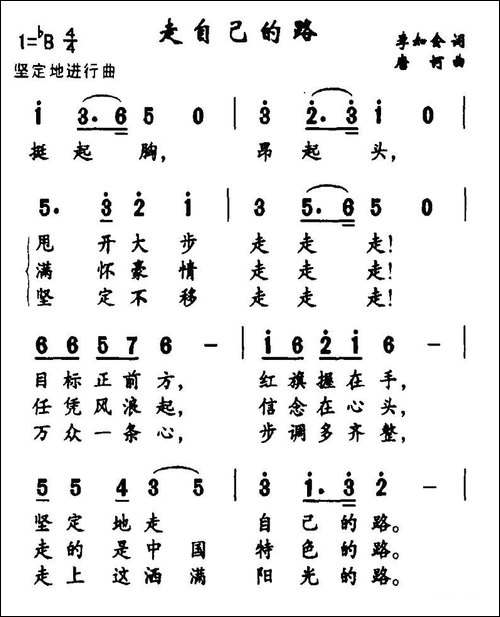 走自己的路
1=♭B 4/4
李如会 词
坚定地进行曲
唐 柯 曲
1̇ 3.6 5 0 | 3̇ 2̇.3̇ 1̇ 0 |
挺 起 胸, 昂 起 头,
5. 3̇ 2̇ 1̇ | 3 5.6 5 0 |
甩 开 大 步 走 走 走!
满 怀 豪 情 走 走 走!
坚 定 不 移 走 走 走!
6 6 5 7 6 - | 1̇ 6 2̇ 1̇ 6 - |
目 标 正 前 方, 红 旗 握 在 手,
任 凭 风 浪 起, 信 念 在 心 头,
万 众 一 条 心, 步 调 多 齐 整,
5̇ 5̇ 4̇ 3̇ 5 | 3̇ 1̇.3̇ 2̇ - |
坚 定 地 走 自 己 的 路。
走 的 是 中 国 特 色 的 路。
走 上 这 洒 满 阳 光 的 路。